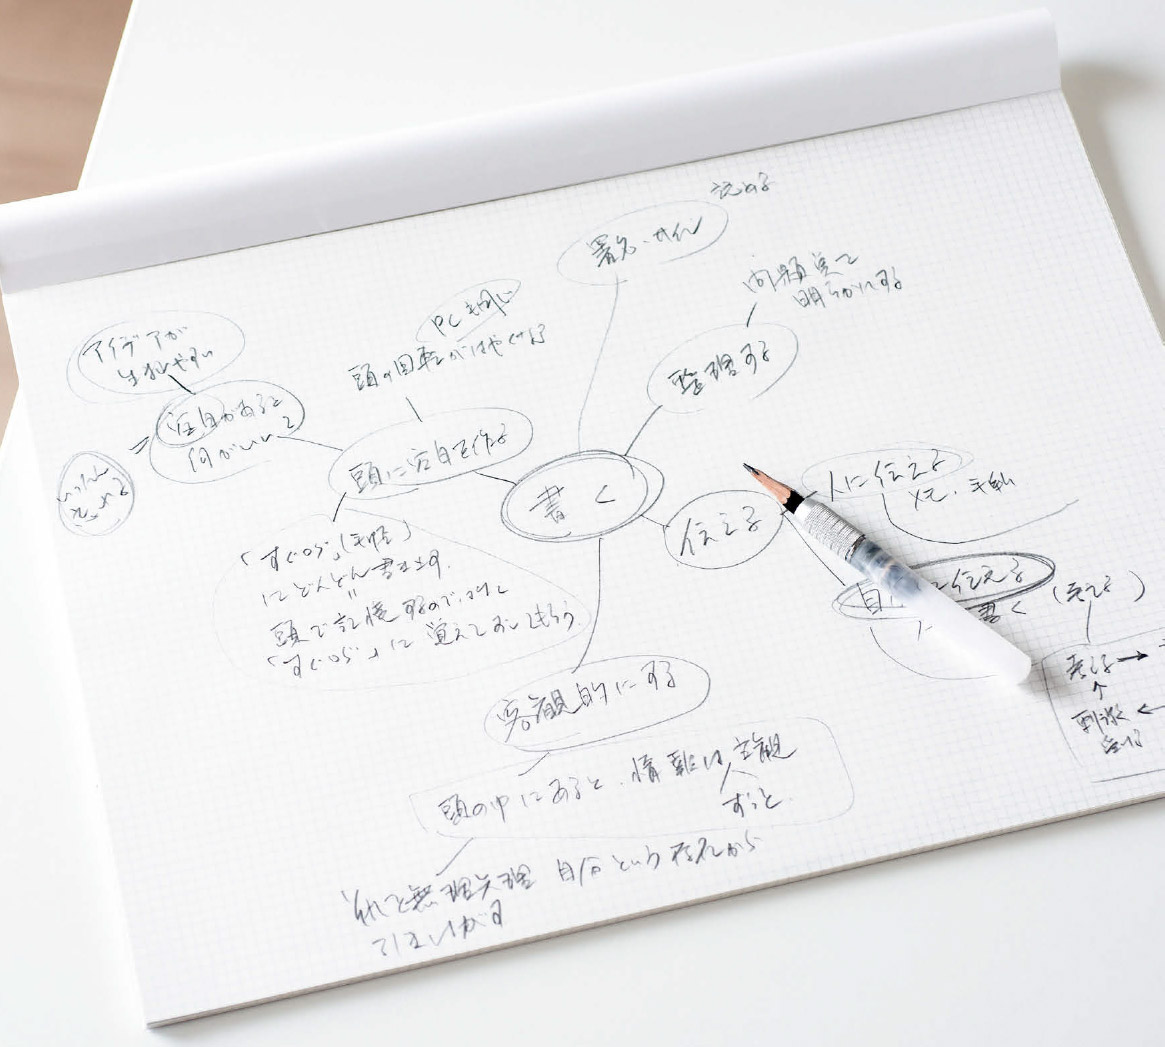 認める
署名・サイン
問題点を
明らかにする
PCも同じ
頭の回転がはやくなる
整理する
アイデアが
生れやすい
空白があると
何がいい?
頭に空白を作る
書く
伝える
人に伝える
メモ、手軽
自分に伝える
書く(考える)
考える→
↑
刺激 ←
「すぐログ」(手帳)
にどんどん書き出す。
頭で記憶するのではなく
「すぐログ」に覚えておいてもらう。
客観的にする
頭の中にあると、情報は主観
ずっと
それを無理矢理 自分という存在から
引きはがす